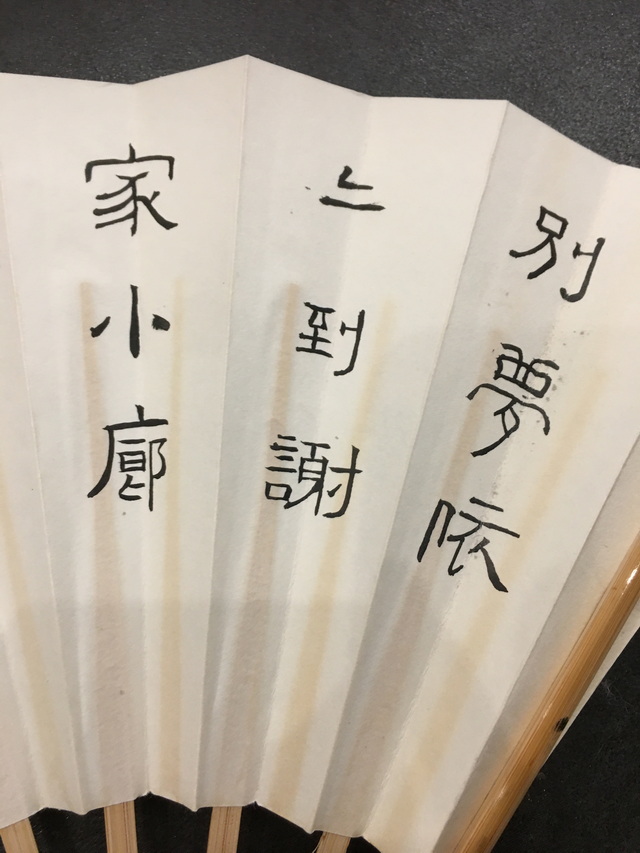 別夢依
〻到謝
家小廊